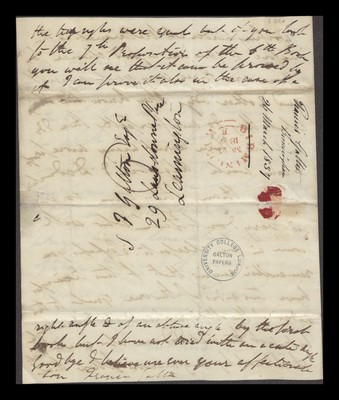 the triangles were equal but if you look
to the 7th Proposition of the 6th Book
you will see that it can be proved by
it I can prove it also in the case of a
Francis Galton
Birmingham
26 March 1837
S T Galton Esqre
29 Lansdowne Pl
Leamington
UNIVERSITY COLLEGE LONDON
GALTON
PAPERS
right angle & of an obtuse angle by the first
books but I have not tried with an acute angle
Goodbye & believe me ever your affectionate
son Francis Galton